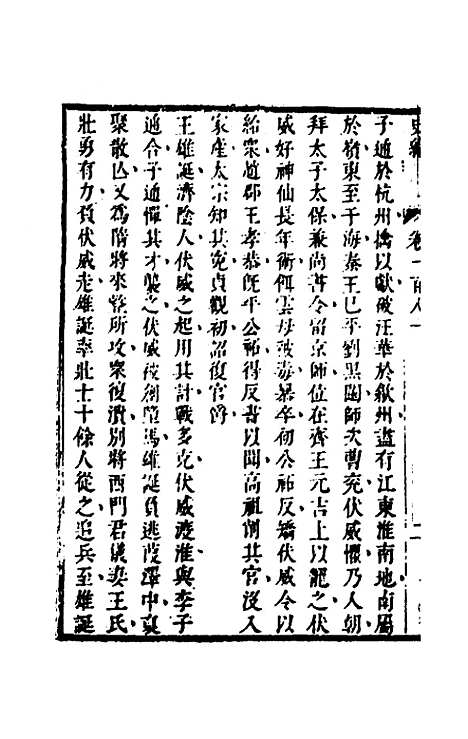 子通於杭州擒以獻破汪華於歙州盡有江東淮南地南屬
於嶺東至于海秦王巳平劉黑闥師次曹兖伏威懼乃入朝
拜太子太保兼尚書令留京師位在齊王元吉上以寵之伏
威好神仙長年術餌雲母被毒暴卒初公祏反矯伏威令以
紿衆趙郡王孝恭旣平公祏得反書以聞高祖削其官沒入
家產太宗知其寃貞觀初詔復官爵
王雄誕濟陰人伏威之起用其計戰多克伏威渡淮與李子
通合子通憚其才襲之伏威被創墮馬雄誕負逃葭澤中裒
聚散亡又爲隋將來整所攻衆復潰別將西門君儀妻王氏
壯勇有力負伏威走雄誕率壯士十餘人從之追兵至雄誕
卷一百八十